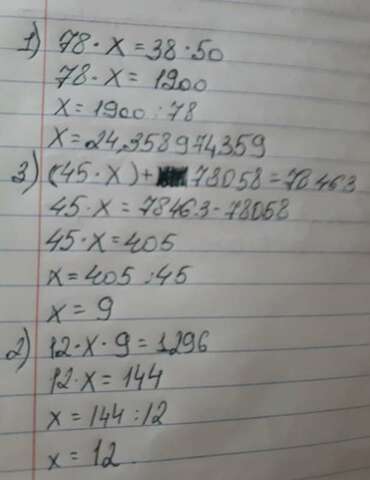 1) 78 · x = 38 · 50
78 · x = 1900
x = 1900 : 78
x = 24,358974359
3) (45 · x) + 78058 = 78463
45 · x = 78463 - 78058
45 · x = 405
x = 405 : 45
x = 9
2) 12 · x · 9 = 1296
12 · x = 144
x = 144 : 12
x = 12